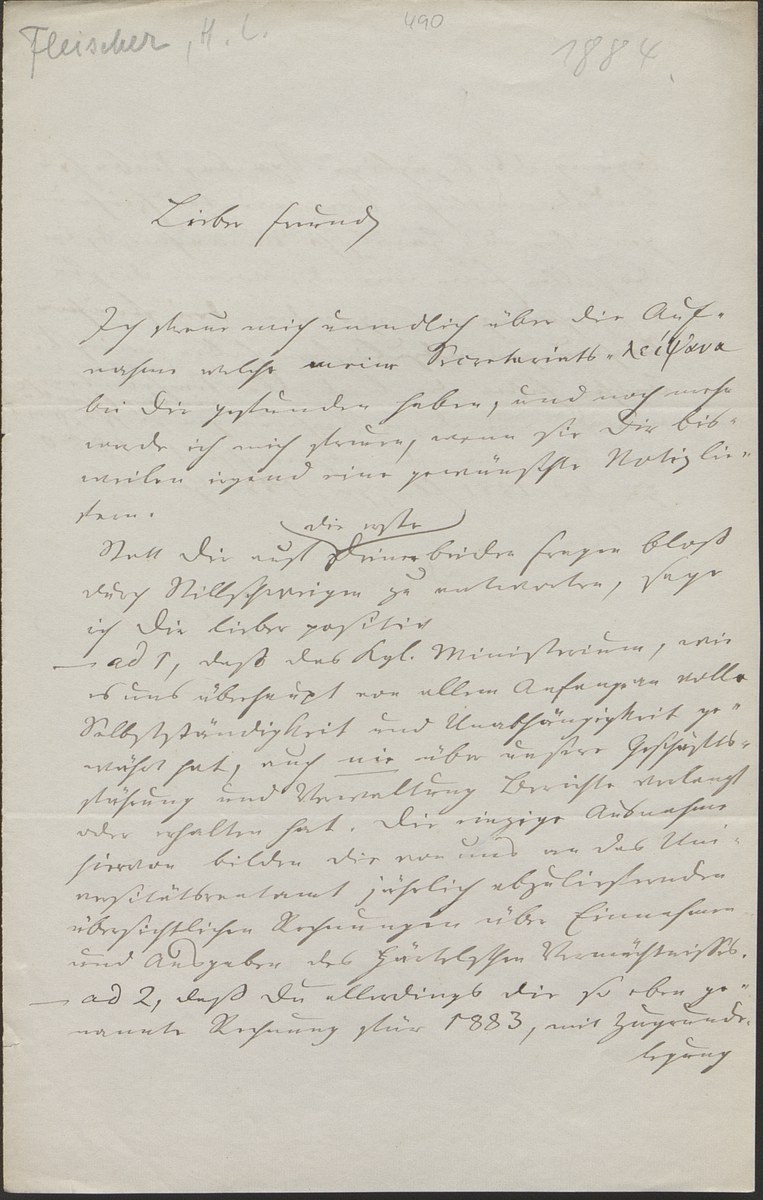 Fleischer, H. L.
490
1884.
Lieber Freund
Ich freue mich unendlich über die Auf-
nahme welche meine Secretariats-λείψανα
bei Dir gefunden haben, und noch mehr
werde ich mich freuen, wenn sie Dir bis-
weilen irgend eine gewünschte Notiz lie-
fern.
die erste
Statt Dir auf Deiner beiden Fragen bloß
durch Stillschweigen zu antworten, sage
ich Dir lieber positiv
— ad 1, daß das Kgl. Ministerium, wie
es uns überhaupt von allem Anfange an volle
Selbstständigkeit und Unabhängigkeit ge-
währt hat, auch nie über unsere Geschäfts-
führung und Verwaltung Berichte verlangt
oder erhalten hat. Die einzige Ausnahme
hiervon bilden die von uns an das Uni-
versitätsrentamt jährlich abzuliefernden
übersichtlichen Rechnungen über Einnahmen
und Ausgaben des Härtelschen Vermächtnisses.
— ad 2, daß Du allerdings die so eben ge-
nannte Rechnung für 1883, mit Zugrunde-
legung